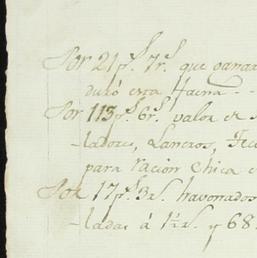 Por 21 p.s 7 r.s que ganar
duró esta Faena - -
Por 113 p.s 6 r.s valor de
-ladores, Lanceros,
para racion chica
Por 17 p.s 3 r.s
-ladas á 1½ r.s y 68